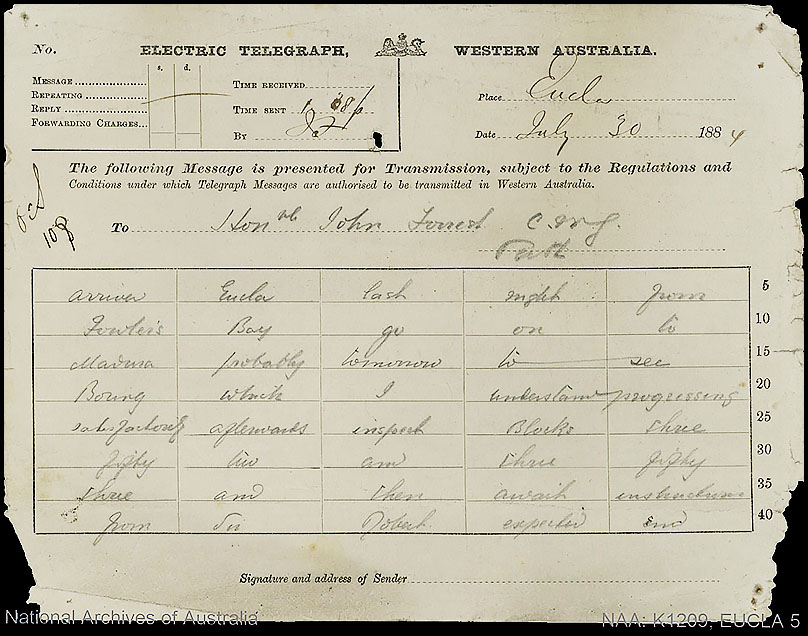 No. ELECTRIC TELEGRAPH, WESTERN AUSTRALIA.
s. d.
MESSAGE
REPEATING
REPLY
FORWARDING CHARGES...
TIME RECEIVED
TIME SENT 1
BY
Place Eucla
Date July 30 1884
The following Message is presented for Transmission, subject to the Regulations and
Conditions under which Telegraph Messages are authorised to be transmitted in Western Australia.
108
To Honble John Forrest C.M.G.
Perth
arrived Eucla last night from 5
Fowlers Bay go on to 10
Madura probably tomorrow to see 15
Boring which I understand progressing 20
satisfactorily afterwards inspect Blocks three 25
fifty two and three fifty 30
three and then await instructions 35
from Sir Robert expected end 40
Signature and address of Sender
National Archives of Australia
NAA: K1209, EUCLA 5